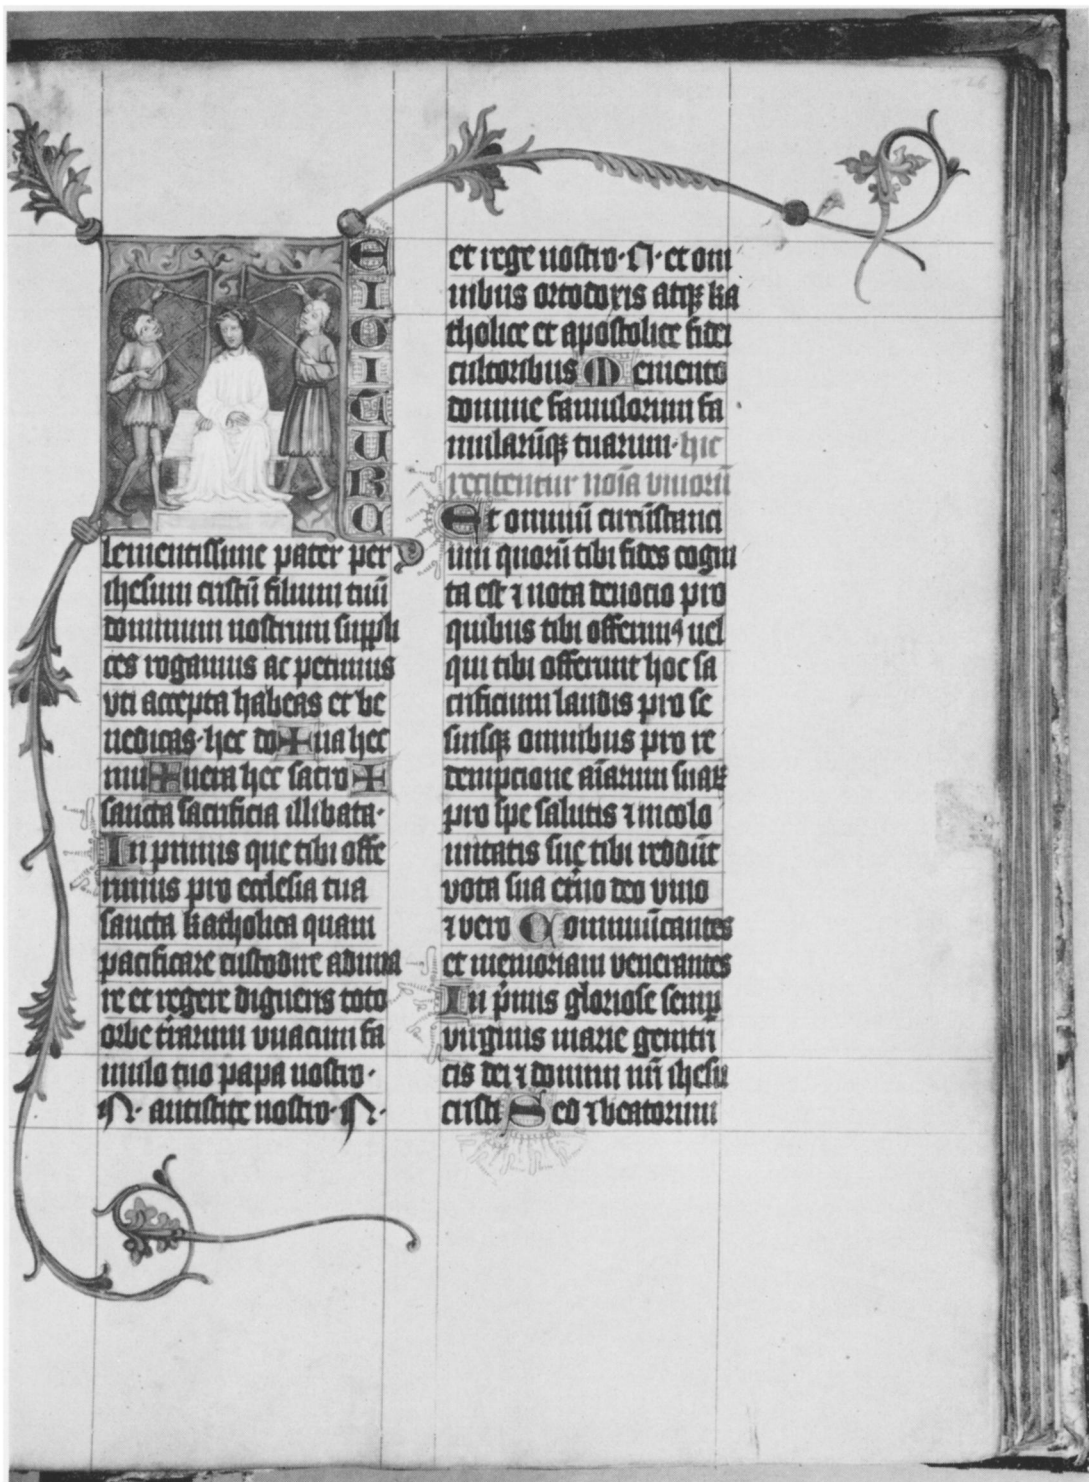 E
I
G
I
T
U
R
C
lementissime pater per
ihesum cristū filium tuū
dominum nostrum suppli
ces rogamus ac petimus
vti accepta habeas et be
nedicas· hec do✠na hec
mu✠nera hec sacro✠
sancta sacrificia illibata·
In primis que tibi offe
rimus pro ecclesia tua
sancta katholica quam
pacificare custodire aduna
re et regere digneris toto
orbe t̄rarum vnacum fa
mulo tuo papa nostro·
N· antistite nostro· N·
et rege nostro· N· et om
nibus ortodoxis atqꝫ ka
tholice et apostolice fidei
cultoribus Memento
domine famulorum fa
mularūqꝫ tuarum· hic
recitentur noīa viuorū
Et omniū circūstanci
um quorū tibi fides cogni
ta est ⁊ nota deuocio pro
quibus tibi offerimꝰ uel
qui tibi offerunt hoc sa
crificium laudis pro se
suisqꝫ omnibus pro re
dempcione aīarum suaꝝ
pro spe salutis ⁊ incolo
mitatis sue tibi reddūt
vota sua et̄no deo viuo
⁊ vero Communicantes
et memoriam venerantes
In p̄mis gloriose semꝑ
virginis marie genitri
cis dei ⁊ domini nr̄i ihesu
cristi Sed ⁊ beatorum